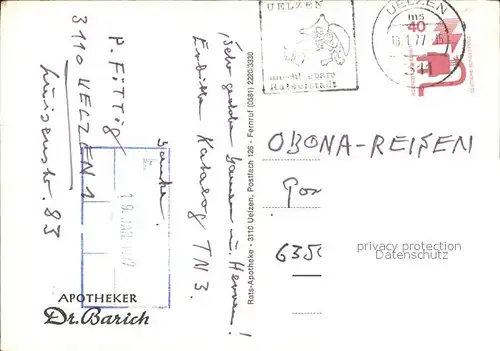 UELZEN
unschätzbare
Ratserstadt
UELZEN
ms
40
18.1.77
311
P. Fittig
3110 UELZEN 1
Luisenstr. 83
Sehr geehrte Damen u. Herren!
Erbitte Katalog TN3.
Danke.
19. JAN. 1977
Rats-Apotheke - 3110 Uelzen, Postfach 126 - Fernruf (0581) 2220/3330
OBONA-REISEN
635
privacy protection
Datenschutz
APOTHEKER
Dr. Barich